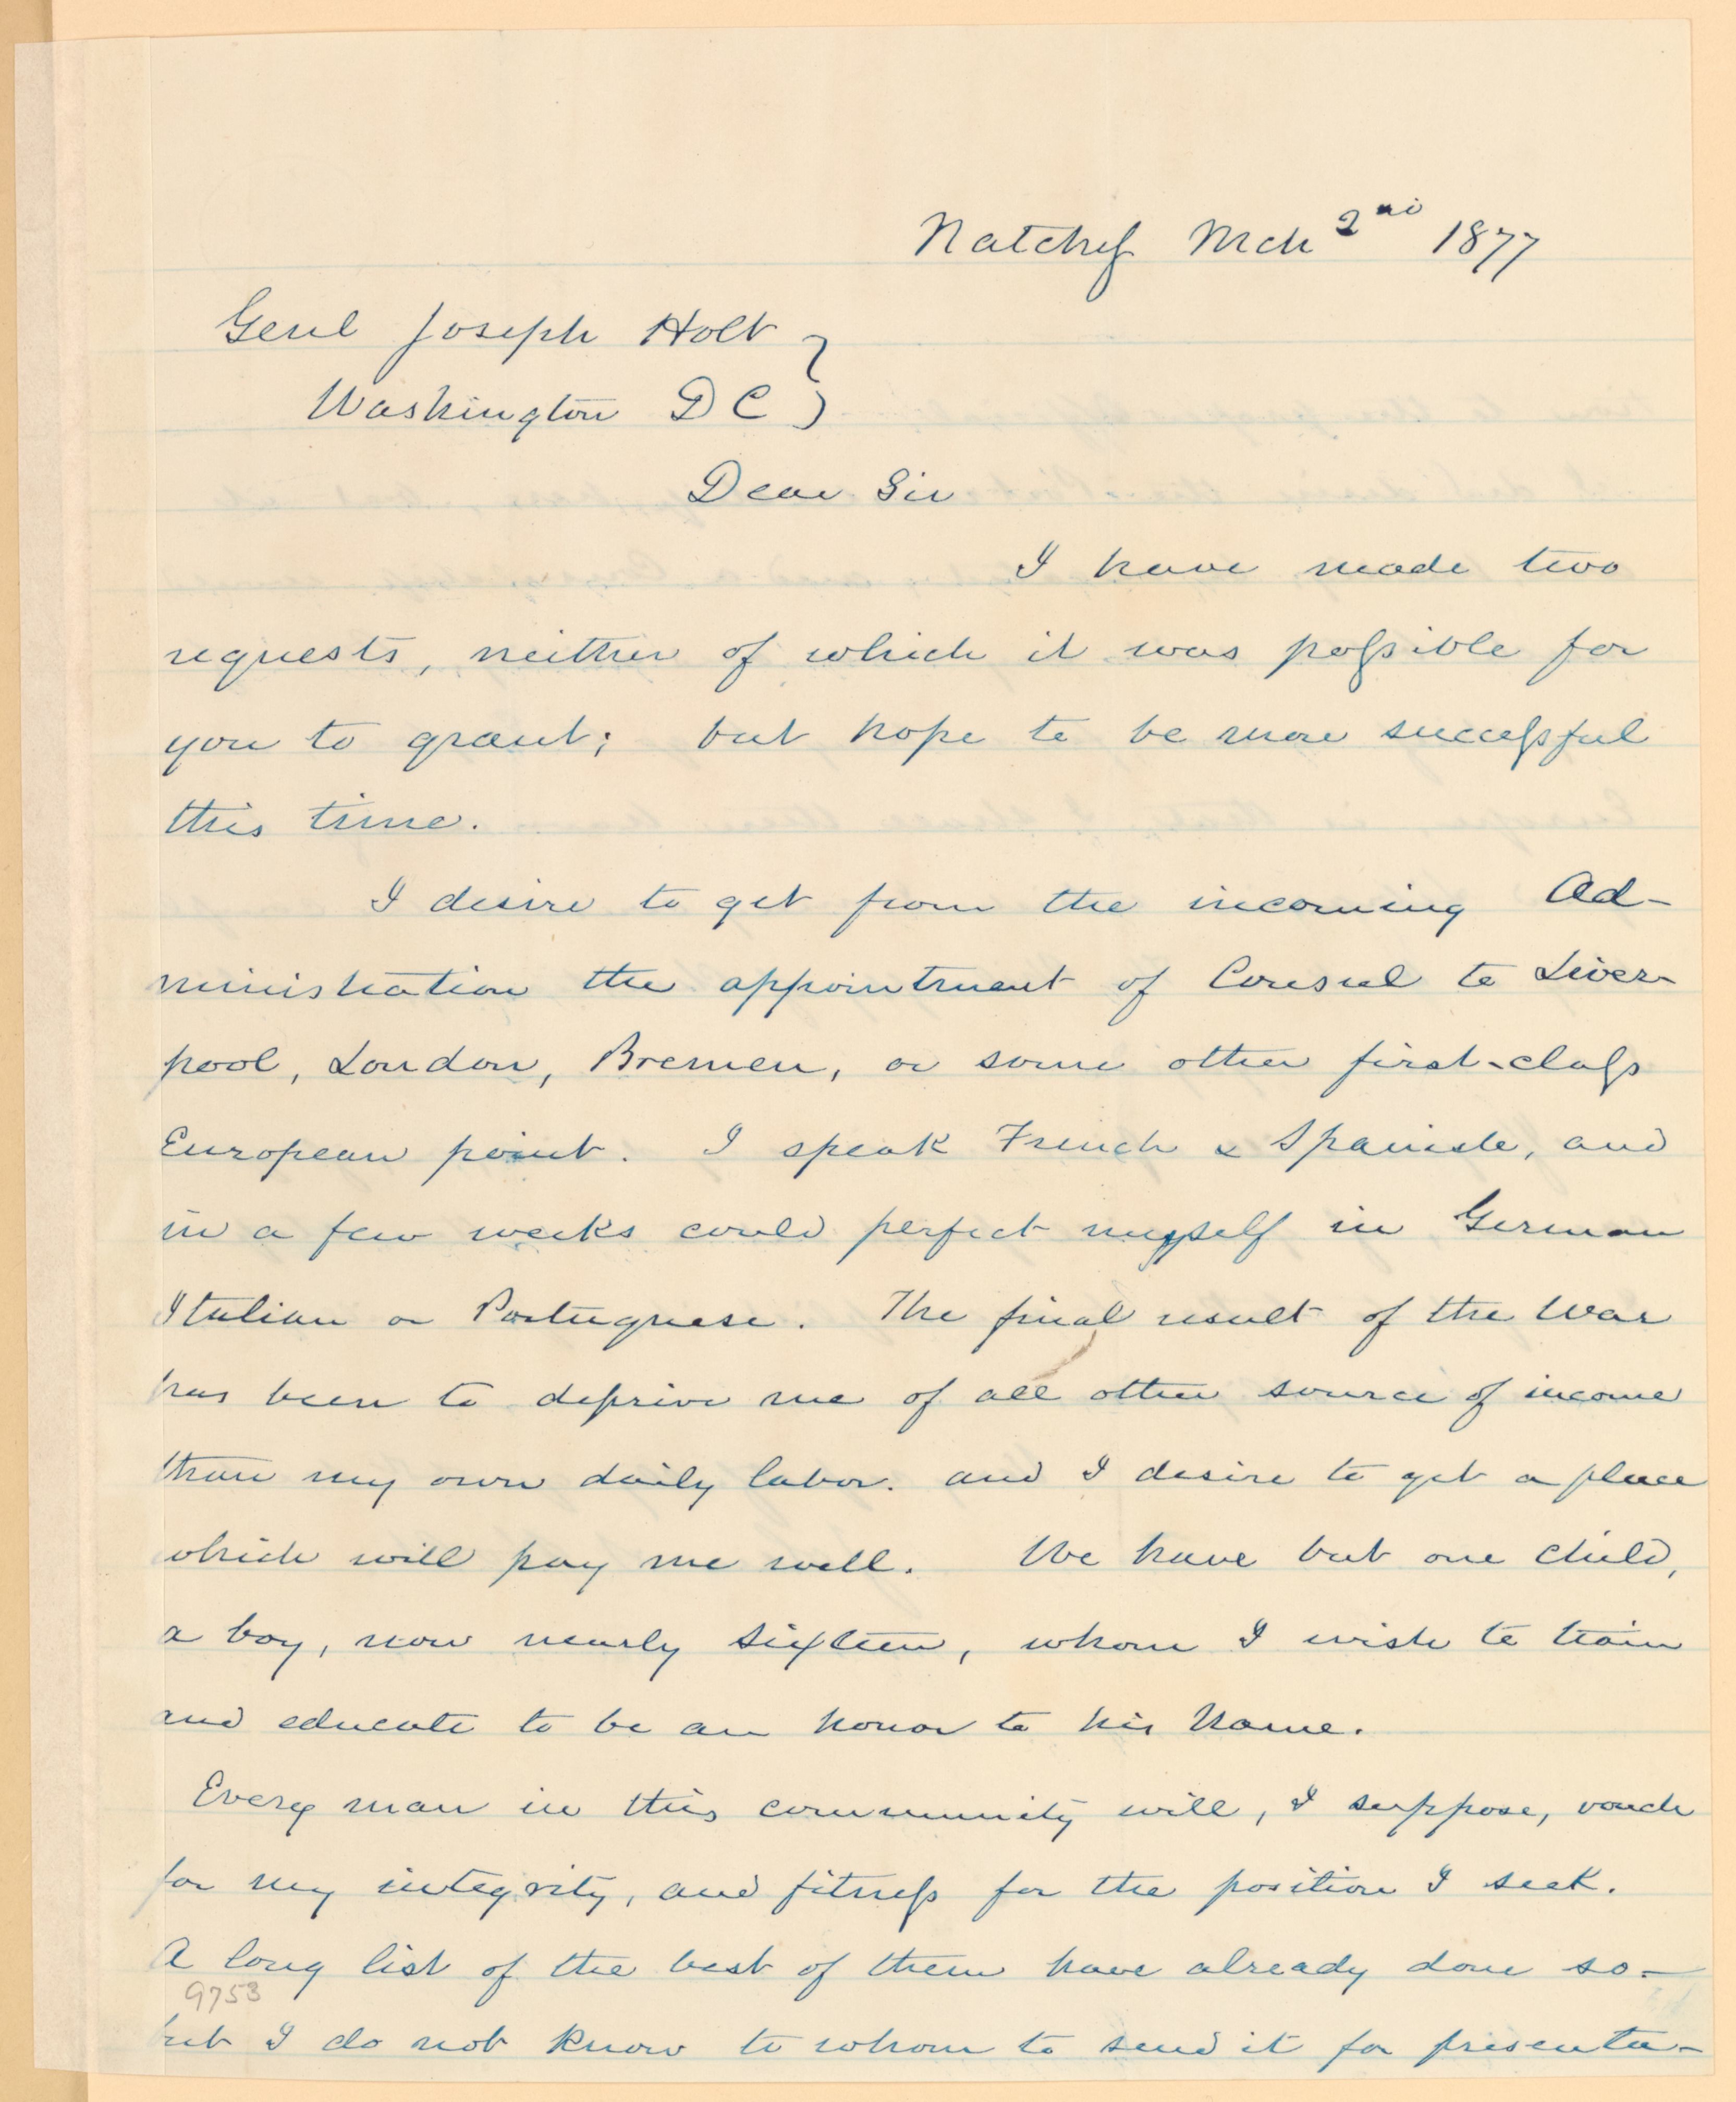 Natchez Mch 2nd 1877
Genl Joseph Holt
Washington DC
Dear Sir
I have made two
requests, neither of which it was possible for
you to grant; but hope to be more successful
this time.
I desire to get from the incoming Ad-
ministration the appointment of Consul to Liver-
pool, London, Bremen, or some other first-class
European point. I speak French & Spanish, and
in a few weeks could perfect myself in German
Italian or Portuguese. The final result of the War
has been to deprive me of all other source of income
than my own daily labor. and I desire to get a place
which will pay me well. We have but one child,
a boy, now nearly sixteen, whom I wish to train
and educate to be an honor to his Name.
Every man in this community will, I suppose, vouch
for my integrity, and fitness for the position I seek.
A long list of the best of them have already done so-
9753
but I do not know to whom to send it for presenta-